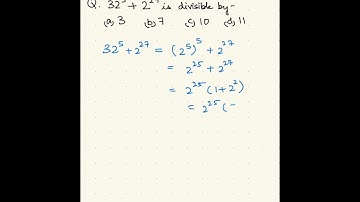 Q. 32⁵ + 2²⁷ is divisible by -
(a) 3 (b) 7 (c) 10 (d) 11
32⁵ + 2²⁷ = (2⁵)⁵ + 2²⁷
= 2²⁵ + 2²⁷
= 2²⁵ (1 + 2²)
= 2²⁵ (